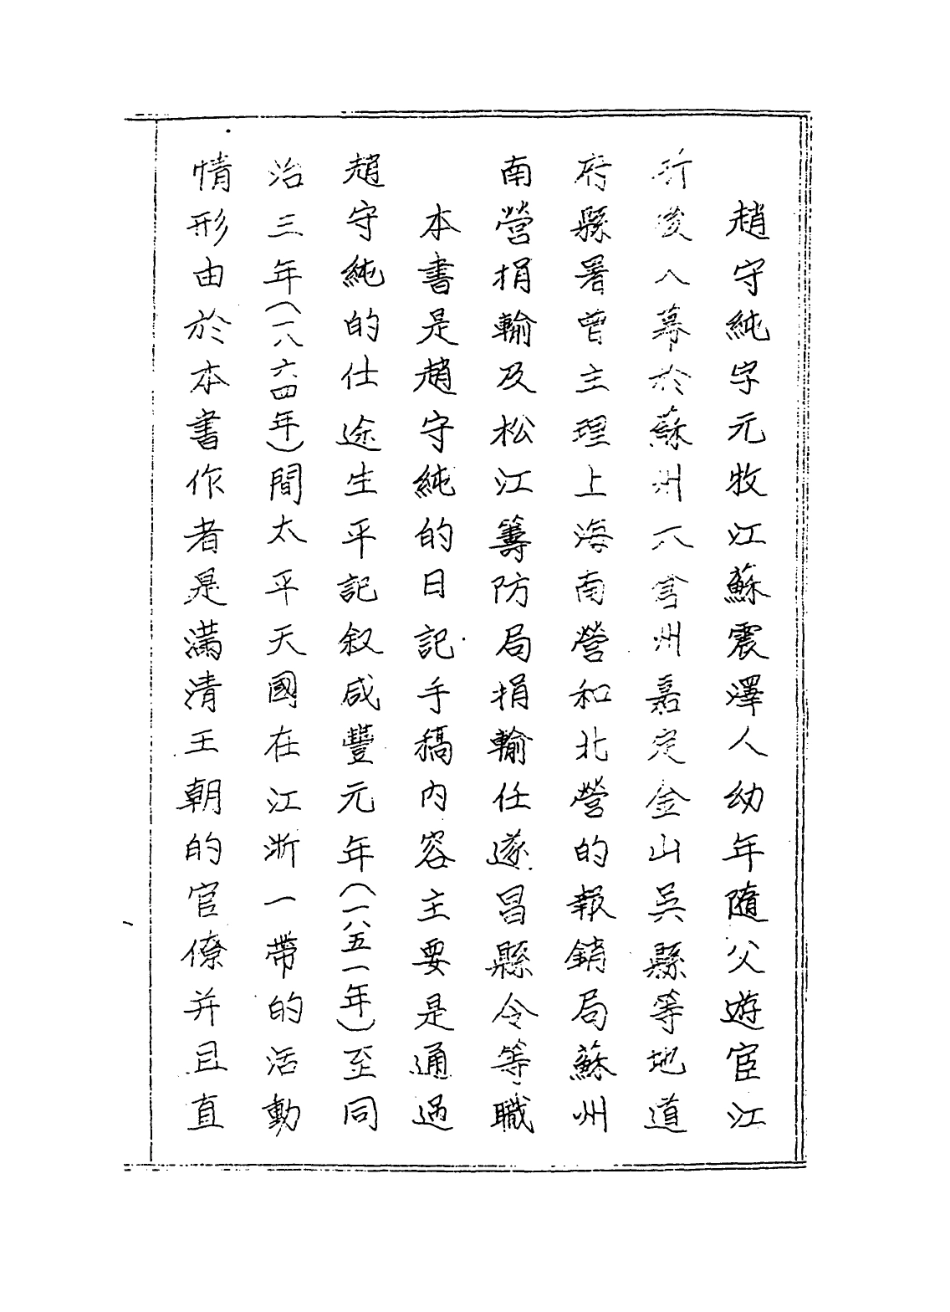 趙守純字元牧江蘇震澤人幼年隨父遊宦江
浙後入幕於蘇州太倉州嘉定金山吳縣等地道
府縣署曾主理上海南營和北營的報銷局蘇州
南營捐輸及松江籌防局捐輸任遂昌縣令等職
本書是趙守純的日記手稿內容主要是通過
趙守純的仕途生平記叙咸豐元年(一八五一年)至同
治三年(一八六四年)間太平天國在江浙一帶的活動
情形由於本書作者是滿清王朝的官僚并且直